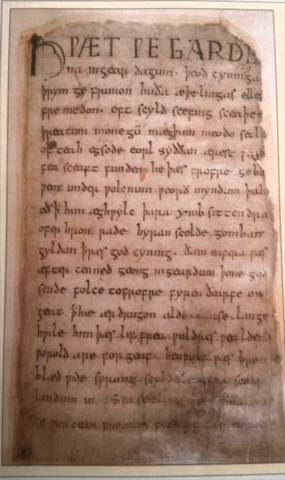 HǷÆT ǷE GARDE
na ingear dagum. þeod cyninga
þrym ge frunon huða æþelingas elle
fre medon. oft scyld scefing sceaþe
þreatum monegū mægþum meodo setl
of teah egsode eorl syððan ærest ƿe
fea sceaft funden he þæs frofre geba
ƿeox under ƿolcnum ƿeorð myndum þah
oð ꝥ him æghƿylc þara ymb sittendra
ofer hron rade hyran scolde gomban
gyldan ꝥ ƿæs god cyning. ðæm eafera ƿæs
æfter cenned geong ingeardum þone god
sende folce tofrofre fyren ðearfe on
geat ꝥ hie ær drugon aldor ase. lange
hƿile him þæs lif frea ƿuldres ƿealdend
ƿorold are for geaf. beoƿulf ƿæs breme
blæd ƿide sprang scyldes eafera scede
landum in. Sƿa sceal gode
ge ƿyrcean fromum